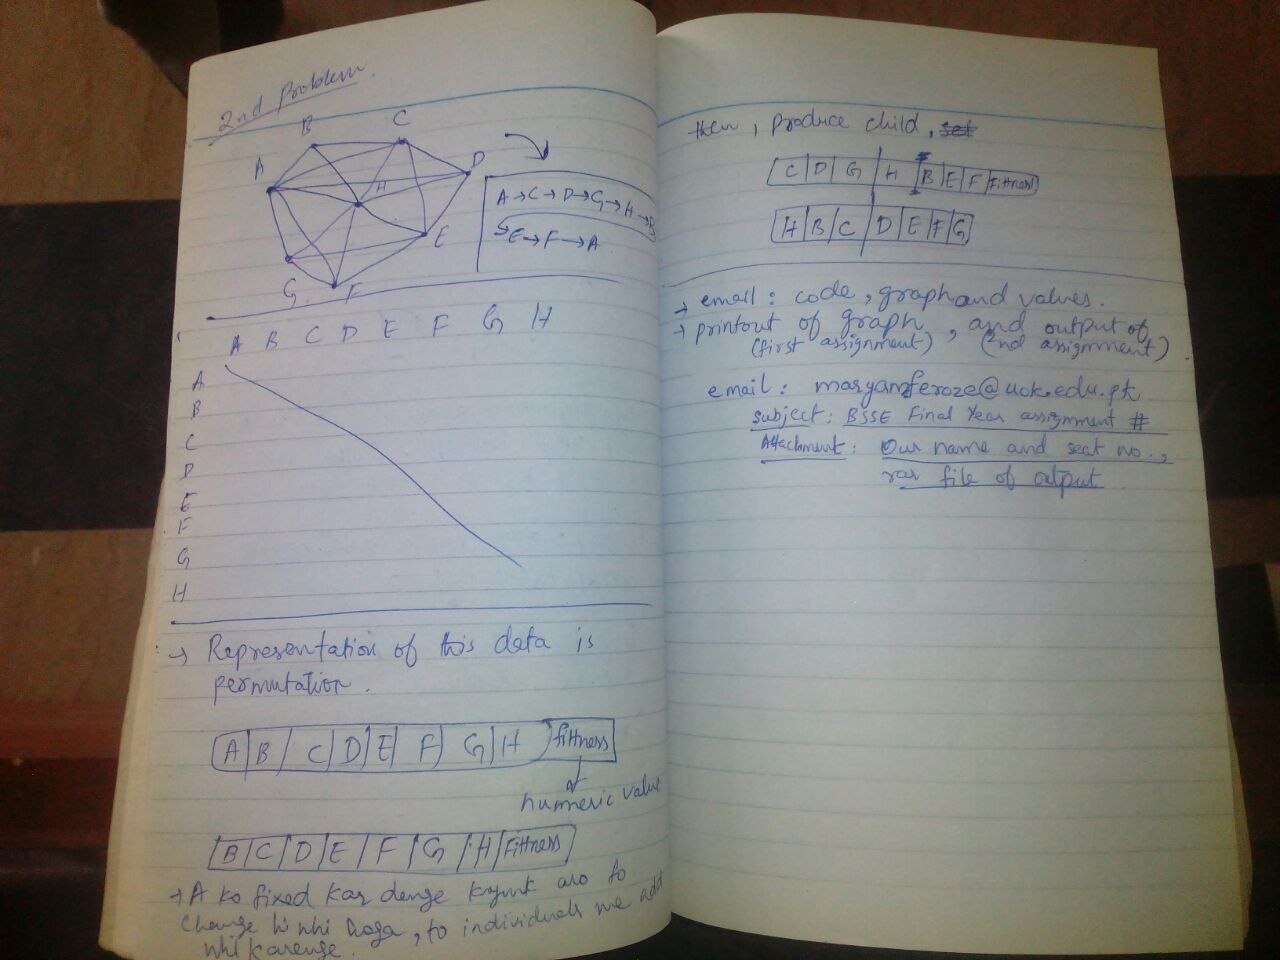 2nd Problem.
B C
A D
H
E
G F
A→C→D→G→H→B
→E→F→A
A B C D E F G H
A
B
C
D
E
F
G
H
→ Representation of this data is
permutation.
A B C D E F G H fittness
numeric value
B C D E F G H Fittness
→ A ko fixed kar denge kyunk wo to
change hi nhi hoga, to individuals me add
nhi karenge.
then, produce child, set
C D G H B E F Fittness
H B C D E F G
→ email: code, graph and values.
→ printout of graph, and output of
(first assignment) (2nd assignment).
email: maryamferoze@uok.edu.pk
Subject: BSSE Final Year assignment #
Attachment: Our name and seat no.,
rar file of output